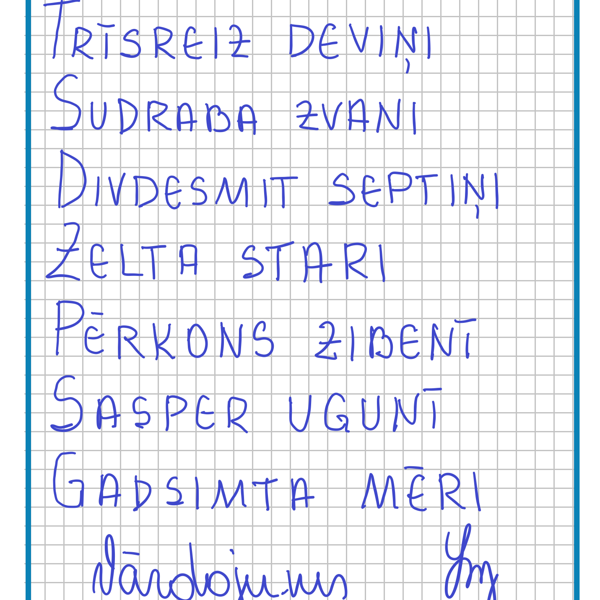 Trīsreiz deviņi
Sudraba zvani
Divdesmit septiņi
Zelta stari
Pērkons zibenī
Sasper ugunī
Gadsimta mēri
Vārdojums